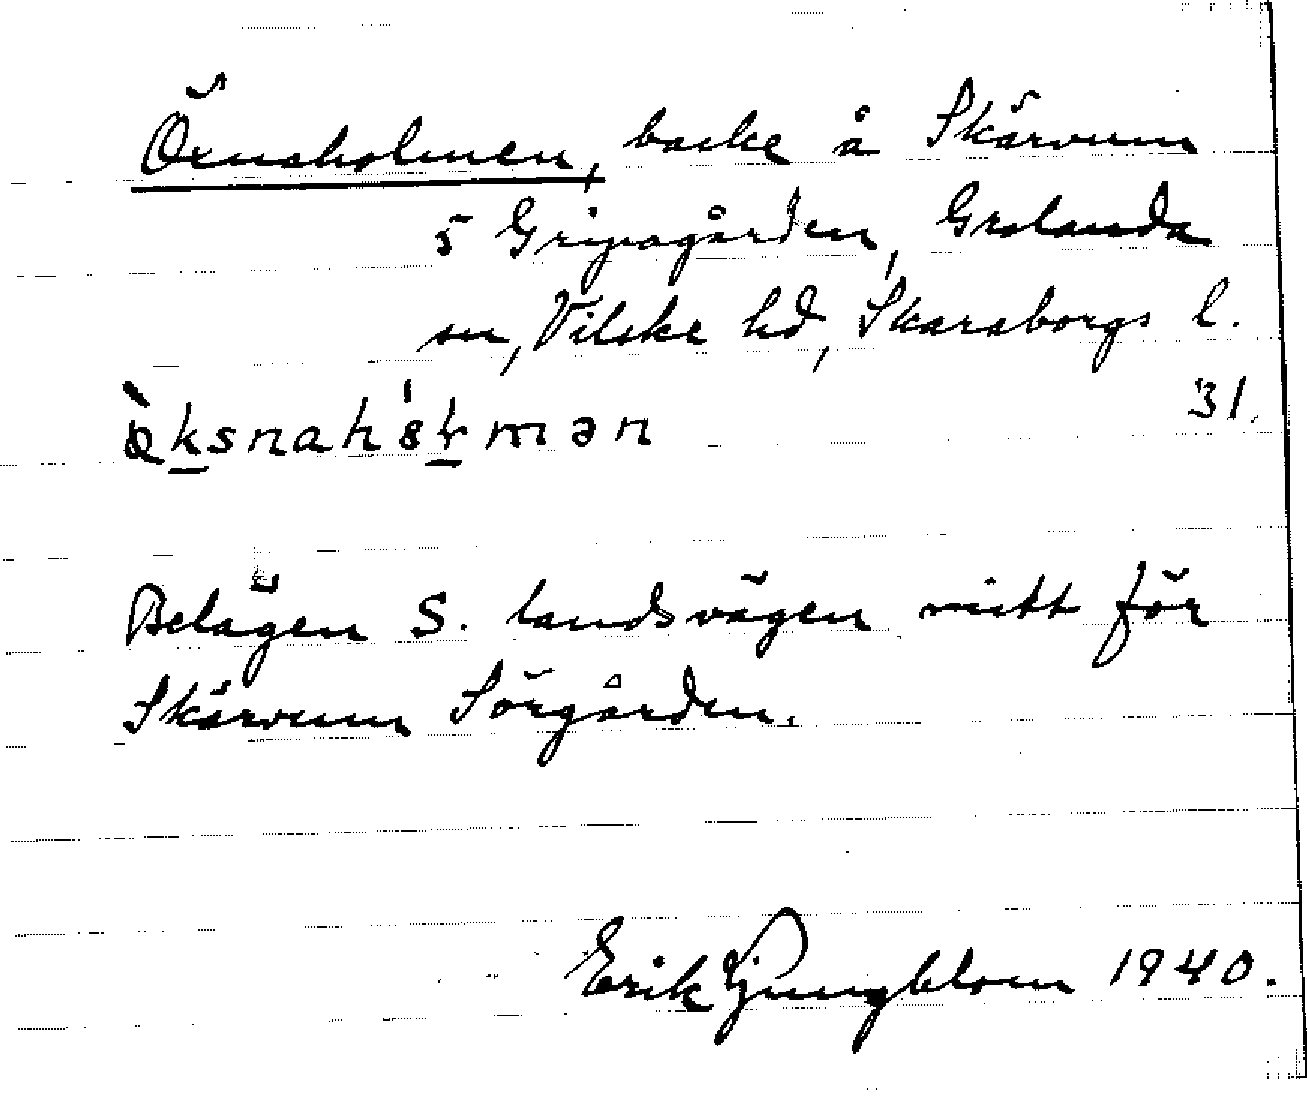 Öxnaholmen, backe å Skärvum
5 Gripagården, Grolanda
sn, Vilske hd, Skaraborgs l.
31.
Belägen S. landsvägen mitt för
Skärvum Sörgården.
Erik Ljungblom 1940.